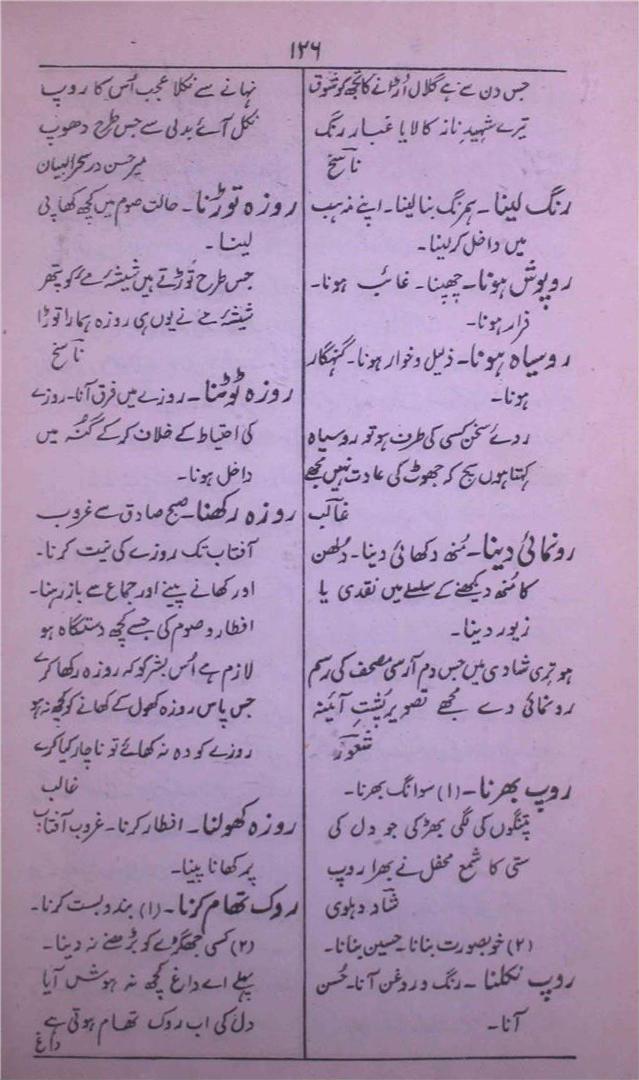 ۱۲۶
جس دن سے ہے گلال اُڑانے کا تجھ کو شوق
تیرے شہیدِ ناز کا لایا غبار رنگ
ناسخ
رنگ لینا۔ ہمرنگ بنا لینا۔ اپنے مذہب
میں داخل کر لینا۔
روپوش ہونا۔ چھپنا۔ غائب ہونا۔
فرار ہونا۔
روسیاہ ہونا۔ ذلیل و خوار ہونا۔ گنہگار
ہونا۔
روئے سخن کسی کی طرف ہو تو روسیاہ
کہتا ہوں سچ کہ جھوٹ کی عادت نہیں مجھے
غالب
رونمائی دینا۔ مُنھ دکھائی دینا۔ دُلھن
کا مُنھ دیکھنے کے سلسلے میں نقدی یا
زیور دینا۔
ہو تری شادی میں جس دم آرسی مصحف کی رسم
رونمائی دے مجھے تصویر پُشتِ آئینہ
شعور
روپ بھرنا۔ (۱) سوانگ بھرنا۔
پتنگوں کی لگی بھڑکی جو دل کی
ستی کا شمع محفل نے بھرا روپ
شاد دہلوی
(۲) خوبصورت بنانا۔ حسین بنانا۔
روپ نکلنا۔ رنگ و روغن آنا۔ حُسن
آنا۔
نہانے سے نکلا عجب اُس کا روپ
نکل آئے بدلی سے جس طرح دھوپ
میر حسن در سحر البیان
روزہ توڑنا۔ حالت صوم میں کچھ کھا پی
لینا۔
جس طرح توڑتے ہیں شیشۂ مے کو پتھر
شیشۂ مے نے یوں ہی روزہ ہمارا توڑا
ناسخ
روزہ ٹوٹنا۔ روزے میں فرق آنا۔ روزے
کی احتیاط کے خلاف کر کے گُنہ میں
داخل ہونا۔
روزہ رکھنا۔ صبح صادق سے غروب
آفتاب تک روزے کی نیت کرنا۔
اور کھانے پینے اور جماع سے باز رہنا۔
افطار و صوم کی جسے کچھ دستگاہ ہو
لازم ہے اُس بشر کو کہ روزہ رکھا کرے
جس پاس روزہ کھول کے کھانے کو کچھ نہ ہو
روزے کو وہ نہ کھائے تو ناچار کیا کرے
غالب
روزہ کھولنا۔ افطار کرنا۔ غروب آفتاب
پر کھانا پینا۔
روک تھام کرنا۔ (۱) بندوبست کرنا۔
(۲) کسی جھگڑے کو بڑھنے نہ دینا۔
پہلے اے داغ کچھ نہ ہوش آیا
دل کی اب روک تھام ہوتی ہے
داغ